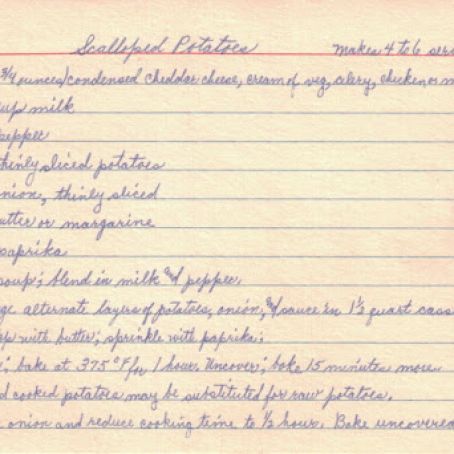 Scalloped Potatoes Makes 4 to 6 ser
3/4 ounces/condensed cheddar cheese, cream of veg, celery, chicken or m
cup milk
pepper
thinly sliced potatoes
nion, thinly sliced
utter or margarine
paprika
soup; blend in milk and pepper.
ge alternate layers of potatoes, onion, and sauce in 1 1/2 quart cass
op with butter; sprinkle with paprika.
; bake at 375°F for 1 hour. Uncover; bake 15 minutes more.
d cooked potatoes may be substituted for raw potatoes.
onion and reduce cooking time to 1/2 hour. Bake uncovered